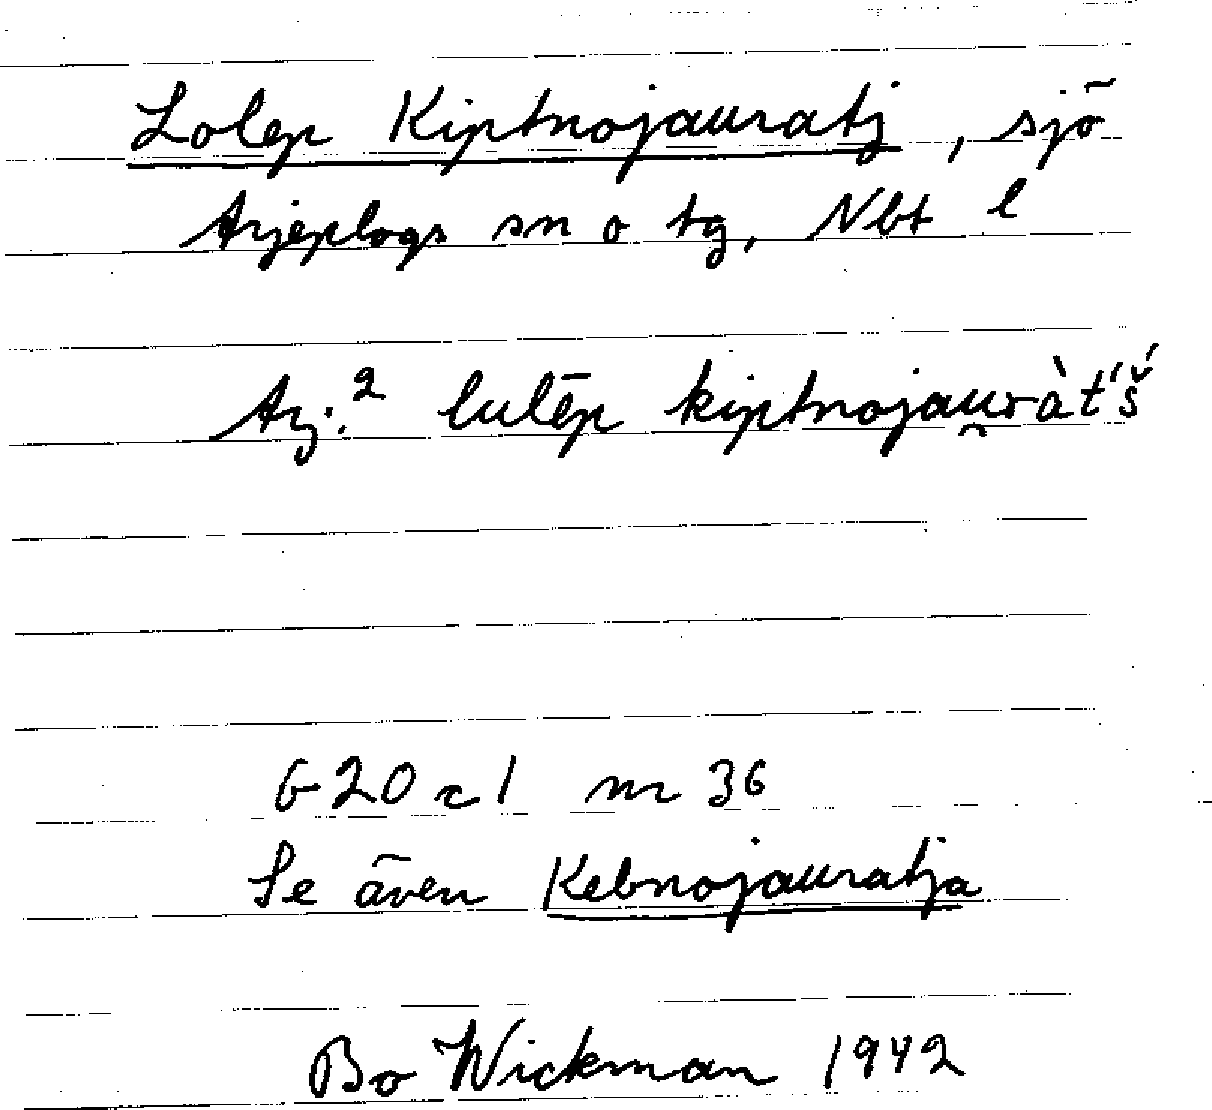 Lolep Kiptnojauratj, sjö
Arjeplogs sn o tg, Nbt l
Arj.² lulēp kiptnojau̯ràt́š́
G20 c 1 nr 36
Se även Kebnojauratja
Bo Wickman 1942